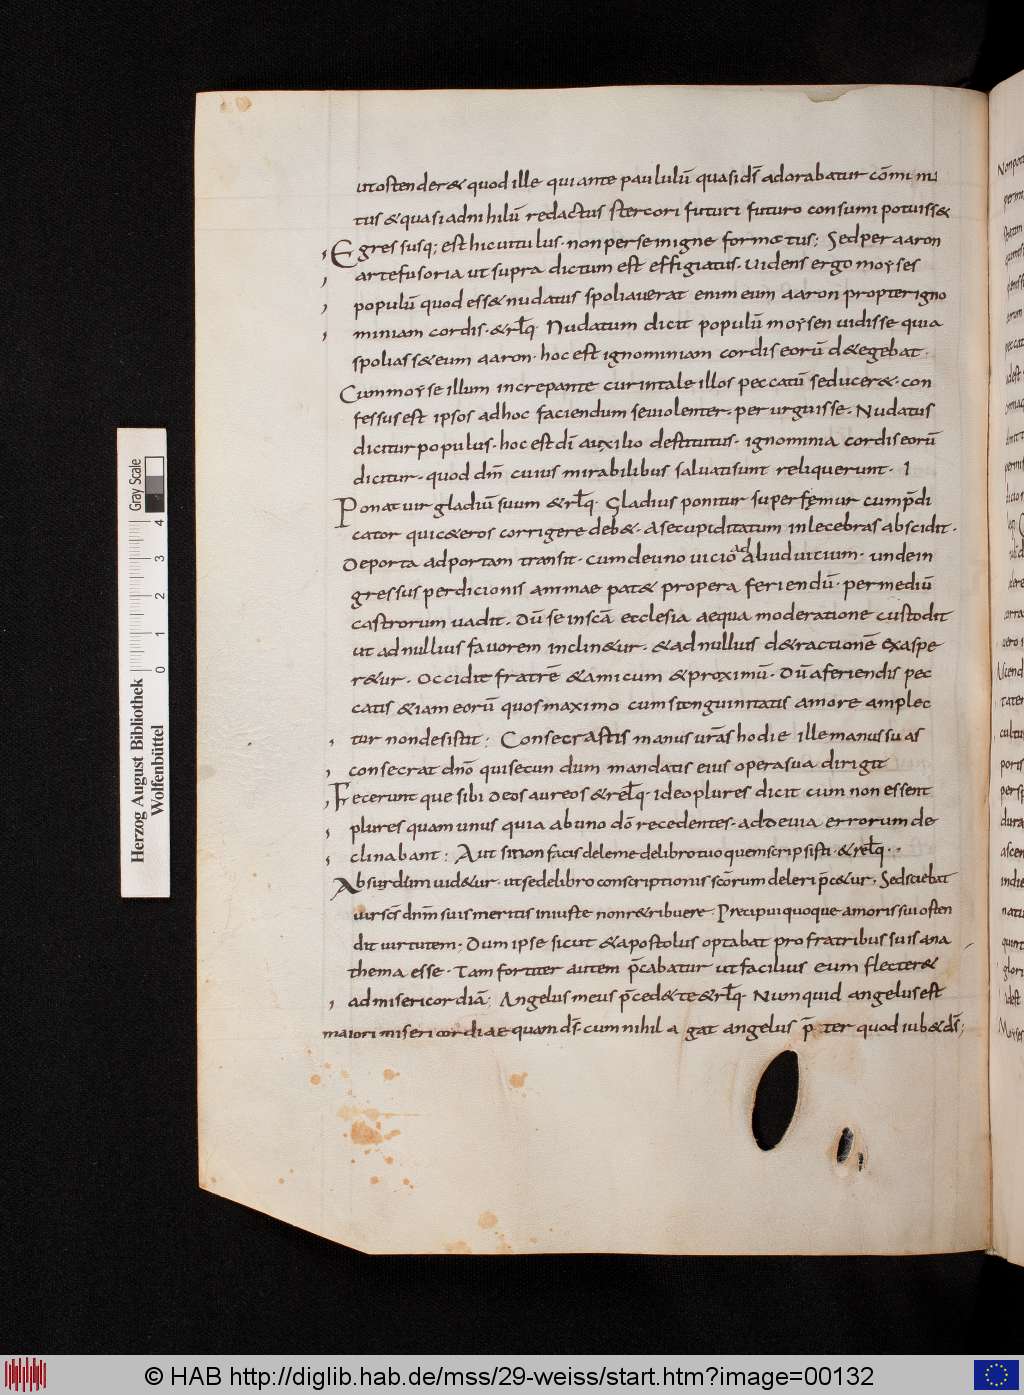 ut ostender& quod ille qui ante paululū quasi ds̄ adorabatur cōminu
tus & quasi ad nihilū redactus stercori futuri futuro consumi potuiss&
Egressusq; est hic uitulus · non per se in igne formatus; Sed per aaron
arte fusoria ut supra dictum est effigiatus · Uidens ergo moyses
populū quod ess& nudatus spoliauerat enim eum aaron propter igno
miniam cordis · & rl̄q · Nudatum dicit populū moysen uidisse quia
spoliass& eum aaron · hoc est ignominiam cordis eorū d&egebat ·
Cum moyse illum increpante cur in tale illos peccatū seducer& · con
fessus est ipsos ad hoc faciendum se uiolenter · perurguisse · Nudatus
dicitur populus · hoc est dī auxilio destitutus · ignominia cordis eorū
dicitur · quod dn̄m cuius mirabilibus saluati sunt reliquerunt · I
Ponat uir gladiū suum & rl̄q · Gladius ponitur super fęmur cum p̄di
cator qui c&eros corrigere deb& · a se cupiditatum inlecebras abscidit ·
De porta ad portam transit · cum de uno uicio ad aliud uitium · unde in
gressus perdicionis animae pat& propera feriendū · per mediū
castrorum uadit · Dū se in scā ecclesia aequa moderatione custodit
ut ad nullius fauorem inclin&ur · & ad nullius d&ractionē exaspe
r&ur · Occidite fratrē & amicum & proximū · Dū a feriendis pec
catis & iam eorū quos maximo cum stenguinitatis amore amplec
tur non desistit : Consecrastis manus urās hodie ille manus suas
consecrat dn̄o qui secundum mandatis eius opera sua dirigit
Fecerunt que sibi deos aureos & rel̄q · ideo plures dicit cum non essent
plures quam unus quia ab uno dō recedentes · ad deuia errorum de
clinabant : Aut si non facis dele me de libro tuo quem scripsisti · & rel̄q ··
Absurdum uid&ur · ut se de libro conscriptionis scōrum deleri p̄c&ur · Sed sciebat
uir scs̄ dn̄m suis meritis iniuste non r&ribuere · Precipui quoque amoris sui osten
dit uirtutem · Dum ipse sicut & apostolus optabat pro fratribus suis ana
thema esse · Tam fortiter autem p̄cabatur ut facilius eum flecter&
ad misericordiā; Angelus meus p̄ced& te & rl̄q · Numquid angelus est
maiori misericordiae quam ds̄ · cum nihil agat angelus p̄ter quod iub& ds̄;
Herzog August Bibliothek
Wolfenbüttel
Gray Scale
0 1 2 3 4
© HAB http://diglib.hab.de/mss/29-weiss/start.htm?image=00132